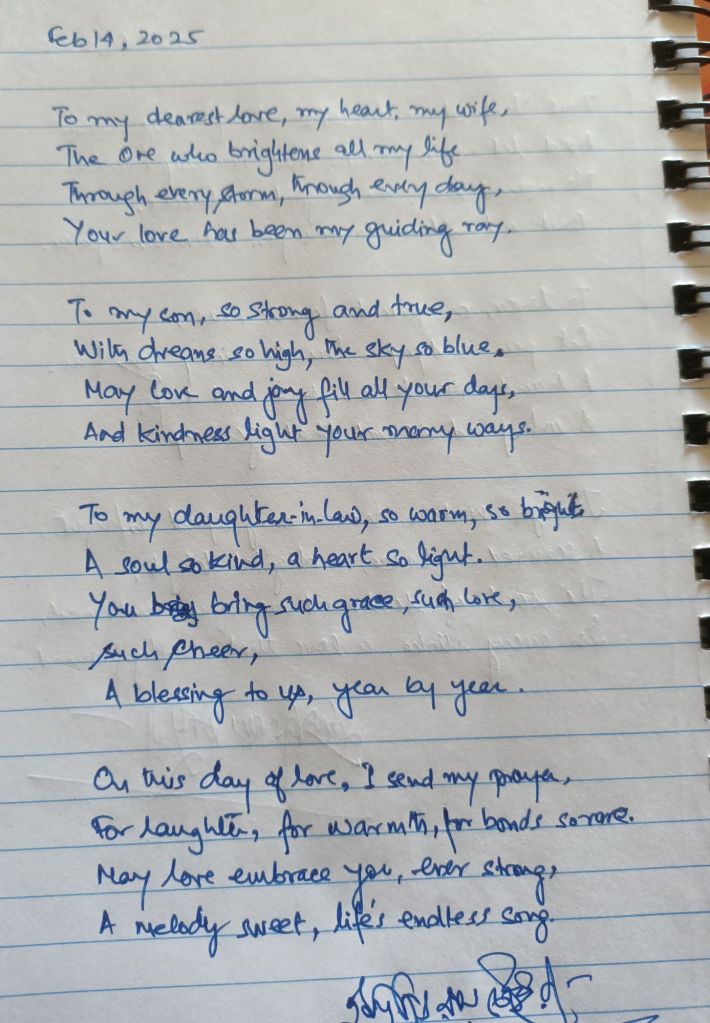 Feb 14, 2025
To my dearest love, my heart, my wife,
The One who brightens all my life
Through every storm, through every day,
Your love has been my guiding ray.
To my son, so strong and true,
With dreams so high, the sky so blue,
May love and joy fill all your days,
And kindness light your many ways.
To my daughter-in-law, so warm, so bright
A soul so kind, a heart so light.
You bring such grace, such love,
such cheer,
A blessing to us, year by year.
On this day of love, I send my prayer,
For laughter, for warmth, for bonds so rare.
May love embrace you, ever strong,
A melody sweet, life's endless song.